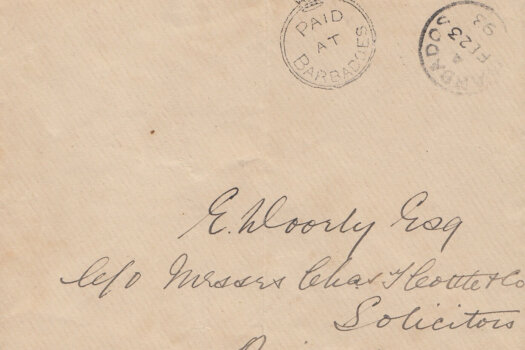 PAID
AT
BARBADOES
BARBADOS
4
FE 23
93
E. Doorly Esq
c/o Messrs Chas J Cottle & Co
Solicitors